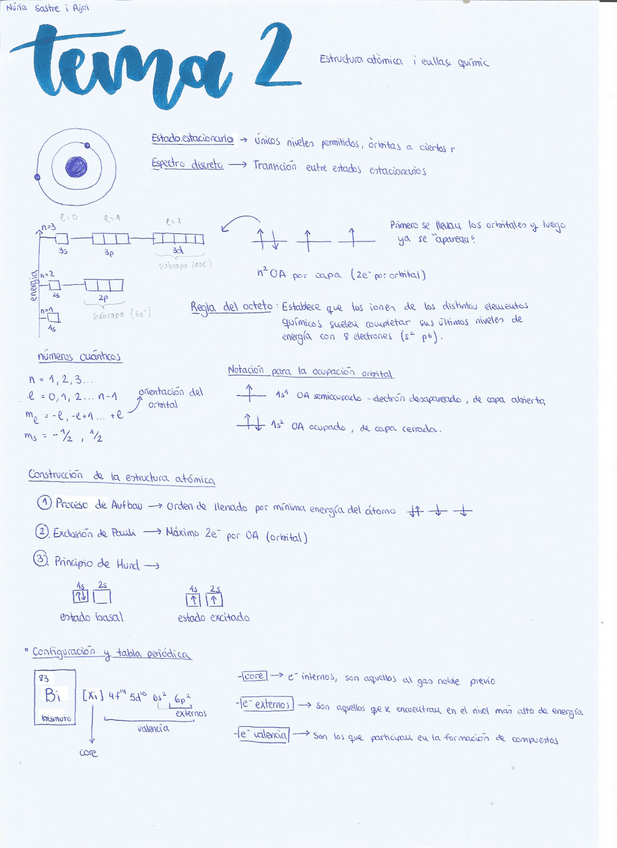 Núria Sastre i Pijol
tema 2
Estructura atòmica i enllaç químic
Estado estacionario → únicos niveles permitidos, órbitas a ciertos r
Espectro discreto → Transición entre estados estacionarios
l=0 l=1 l=2
n=3
3s 3p 3d
subcapa (10e⁻)
energía
n=2
2s 2p
subcapa (6e⁻)
n=1
1s
Primero se llenan los orbitales y luego
ya se "aparean".
n² OA por capa (2e⁻ por orbital)
Regla del octeto: Establece que los iones de los distintos elementos
químicos suelen completar sus últimos niveles de
energía con 8 electrones (s² p⁶).
números cuánticos
n = 1, 2, 3...
l = 0, 1, 2... n-1
mₗ = -l, -l+1... +l
orientación del
orbital
ms = -1/2, 1/2
Notación para la ocupación orbital
1s¹ OA semiocupado - electrón desapareado, de capa abierta
1s² OA ocupado, de capa cerrada.
Construcción de la estructura atómica
① Proceso de Aufbau → Orden de llenado por mínima energía del átomo
② Exclusión de Pauli → Máximo 2e⁻ por OA (orbital)
③ Principio de Hund →
1s 2s
estado basal
1s 2s
estado excitado
• Configuración y tabla periódica
83
Bi
bismuto
[Xi] 4f¹⁴ 5d¹⁰ 6s² 6p²
externos
valencia
core
-core → e⁻ internos, son aquellos al gas noble previo
-e⁻ externos → son aquellos que se encuentran en el nivel más alto de energía
-e⁻ valencia → son los que participan en la formación de compuestos